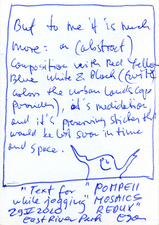 But to me it is much
more: an (abstract)
Composition with Red Yellow
Blue White & Black (
colors the urban landscape
provides), it's meditation,
and it's preserving stickers that
would be lost soon in time
and space.
"Text for "POMPEII
while jogging MOSAICS
29 2020 REDUX"
East River Park